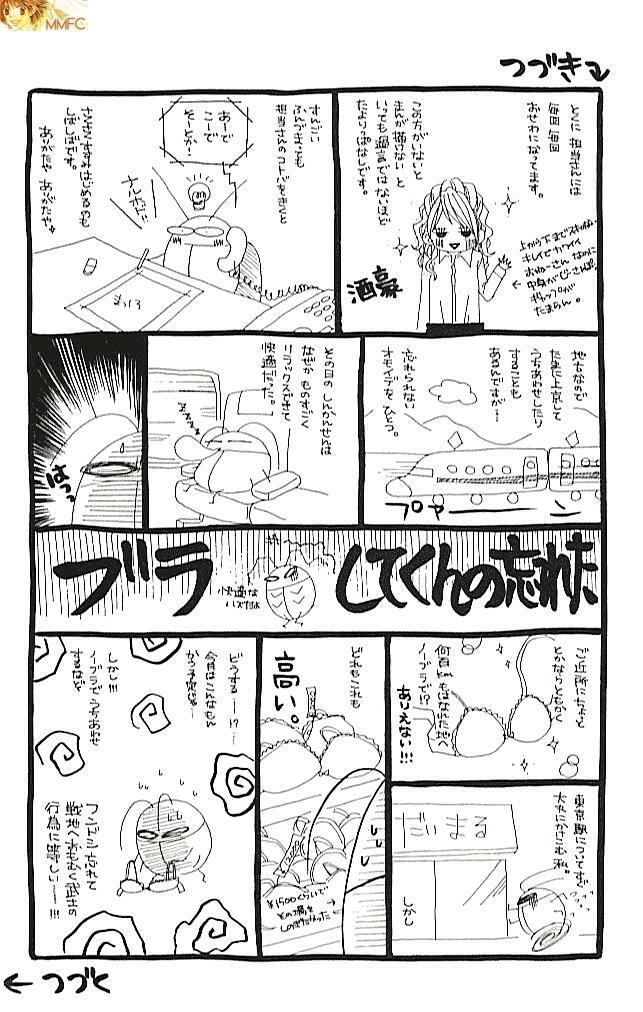 MMFC
つづき
とくに 担当さんには
毎回 毎回
おせわになってます。
この方がいないと
まんが描けない と
いっても過言ではないほど
たよりっぱなしです。
上から下までスキのない
キレイでカワイイ
おねーさんなのに
ギャップが
たまらん。
酒豪
すんごい
ふんづまっても
担当さんのコトバをきくと
あーで
こーで
そーとか・
ナルホド!!
まっしろ
さくさくすすみはじめるのも
しばしばです。
ありがたや ありがたや。
地方なので
たまに上京して
うちあわせしたり
することも
あるんですが…
忘れられない
オモイデを ひとつ。
プァーーン
その日の しんかんせんは
なぜか ものすごく
リラックスできて
快適だった。
ZZZZZ
はっ
ブラ
してくんの忘れた
快適な
ハズだよ
ご近所にちょっと
とかならともかく
何百kmもはなれた地へ
ノーブラで!?
ありえない!!!
東京駅についてすぐ
大丸にかけこむ 私。
だいまる
しかし
どれもこれも
高い。
¥1500くらいで
その場を
しのぎたかった
どうする――!?――
今月はこんなもん
かう予定じゃ―
しかし!!!
ノーブラでうちあわせ
するなど
フンドシ忘れて
戦地へおもむく武士の
行為に等しい――!!!
つづく